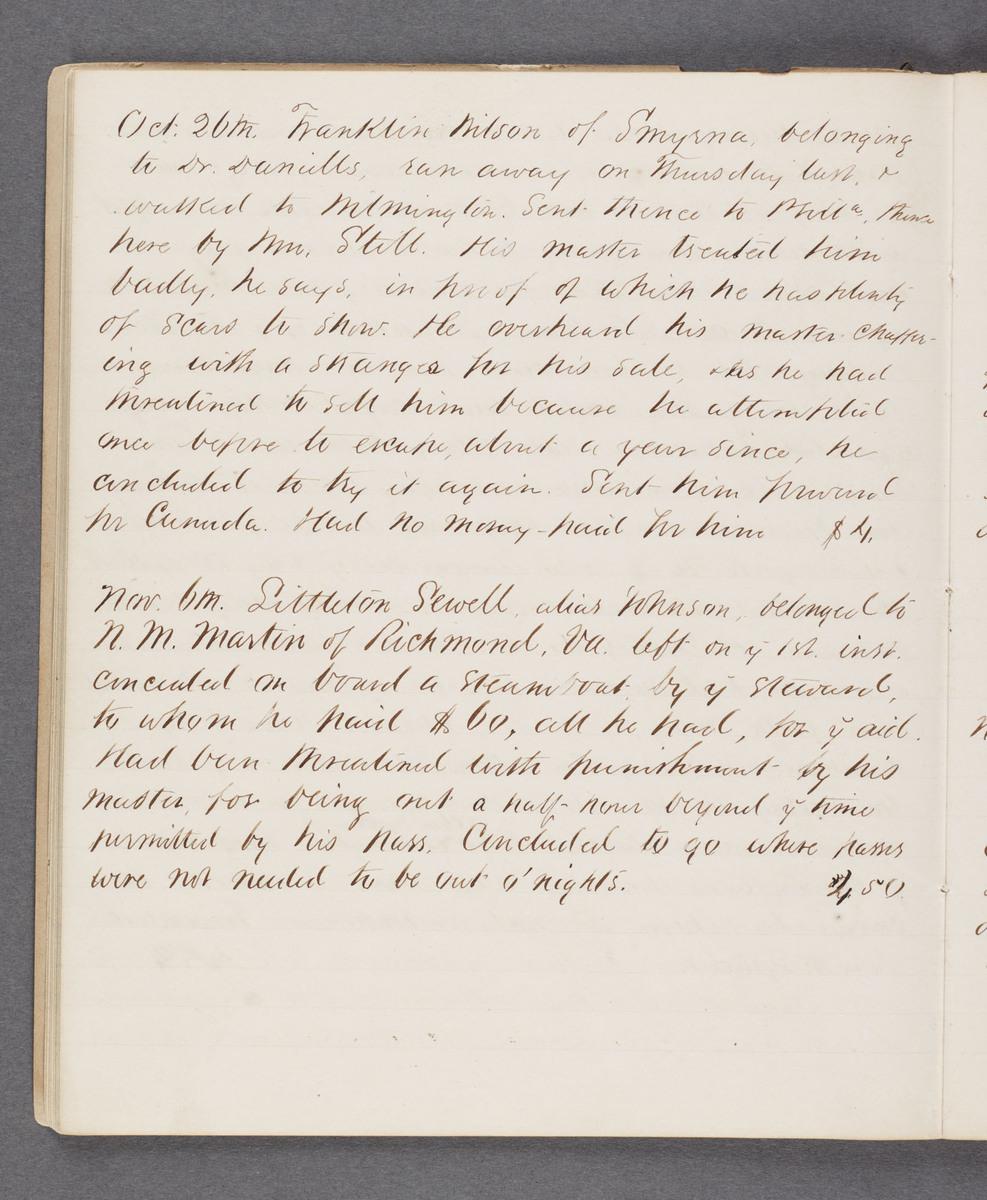 Oct. 26th. Franklin Wilson of Smyrna, belonging
to Dr. Daniells, ran away on Thursday last, &
walked to Wilmington. Sent thence to Phila, thence
here by Wm. Still. His master treated him
badly, he says, in proof of which he has plenty
of scars to show. He overheard his master chaffer-
ing with a stranger for his sale, as he had
threatened to sell him because he attempted
once before to escape, about a year since, he
concluded to try it again. Sent him forward
for Canada. Had no money - paid for him $4.
Nov. 6th. Littleton Sewell, alias Johnson, belonged to
N. M. Martin of Richmond, Va. left on y 1st. inst.
concealed on board a steamboat by y steward,
to whom he paid $60, all he had, for y aid.
Had been threatened with punishment by his
master, for being out a half-hour beyond y time
permitted by his pass. Concluded to go where passes
were not needed to be out o' nights. 50